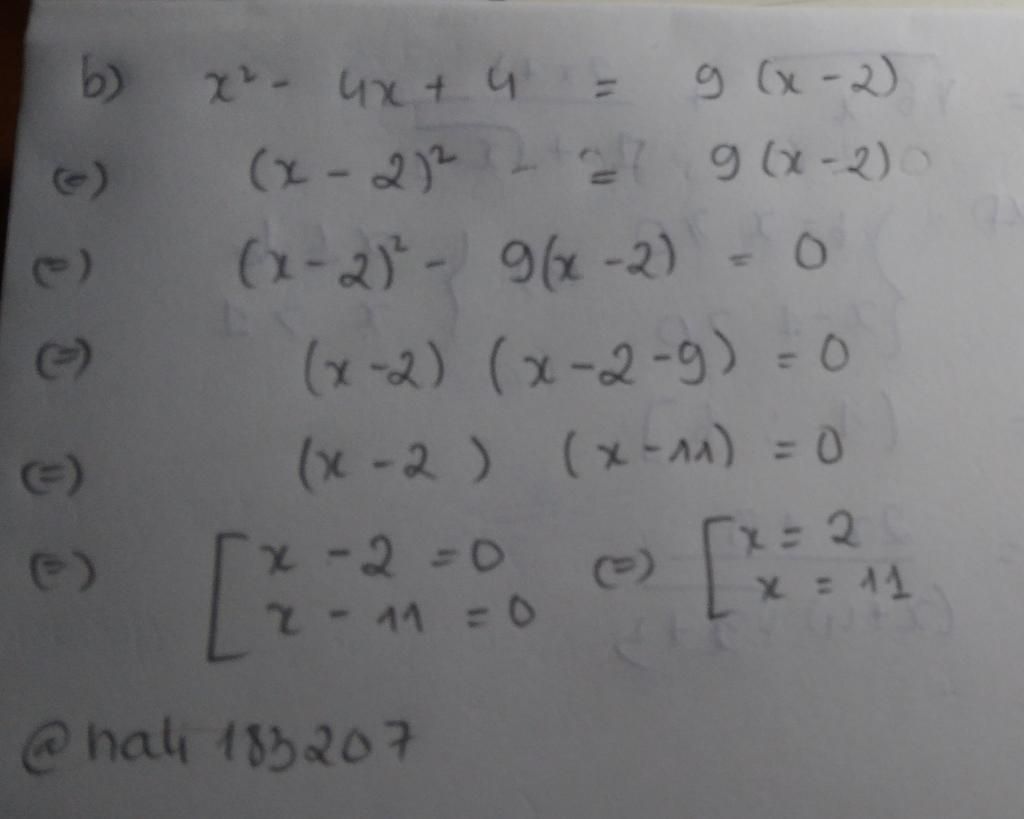 b) x² - 4x + 4 = 9 (x - 2)
(=) (x - 2)² = 9 (x - 2)
(=) (x - 2)² - 9(x - 2) = 0
(=) (x - 2) (x - 2 - 9) = 0
(=) (x - 2) (x - 11) = 0
(=) [ x - 2 = 0 (=) [ x = 2
x - 11 = 0 x = 11
@nali 183207